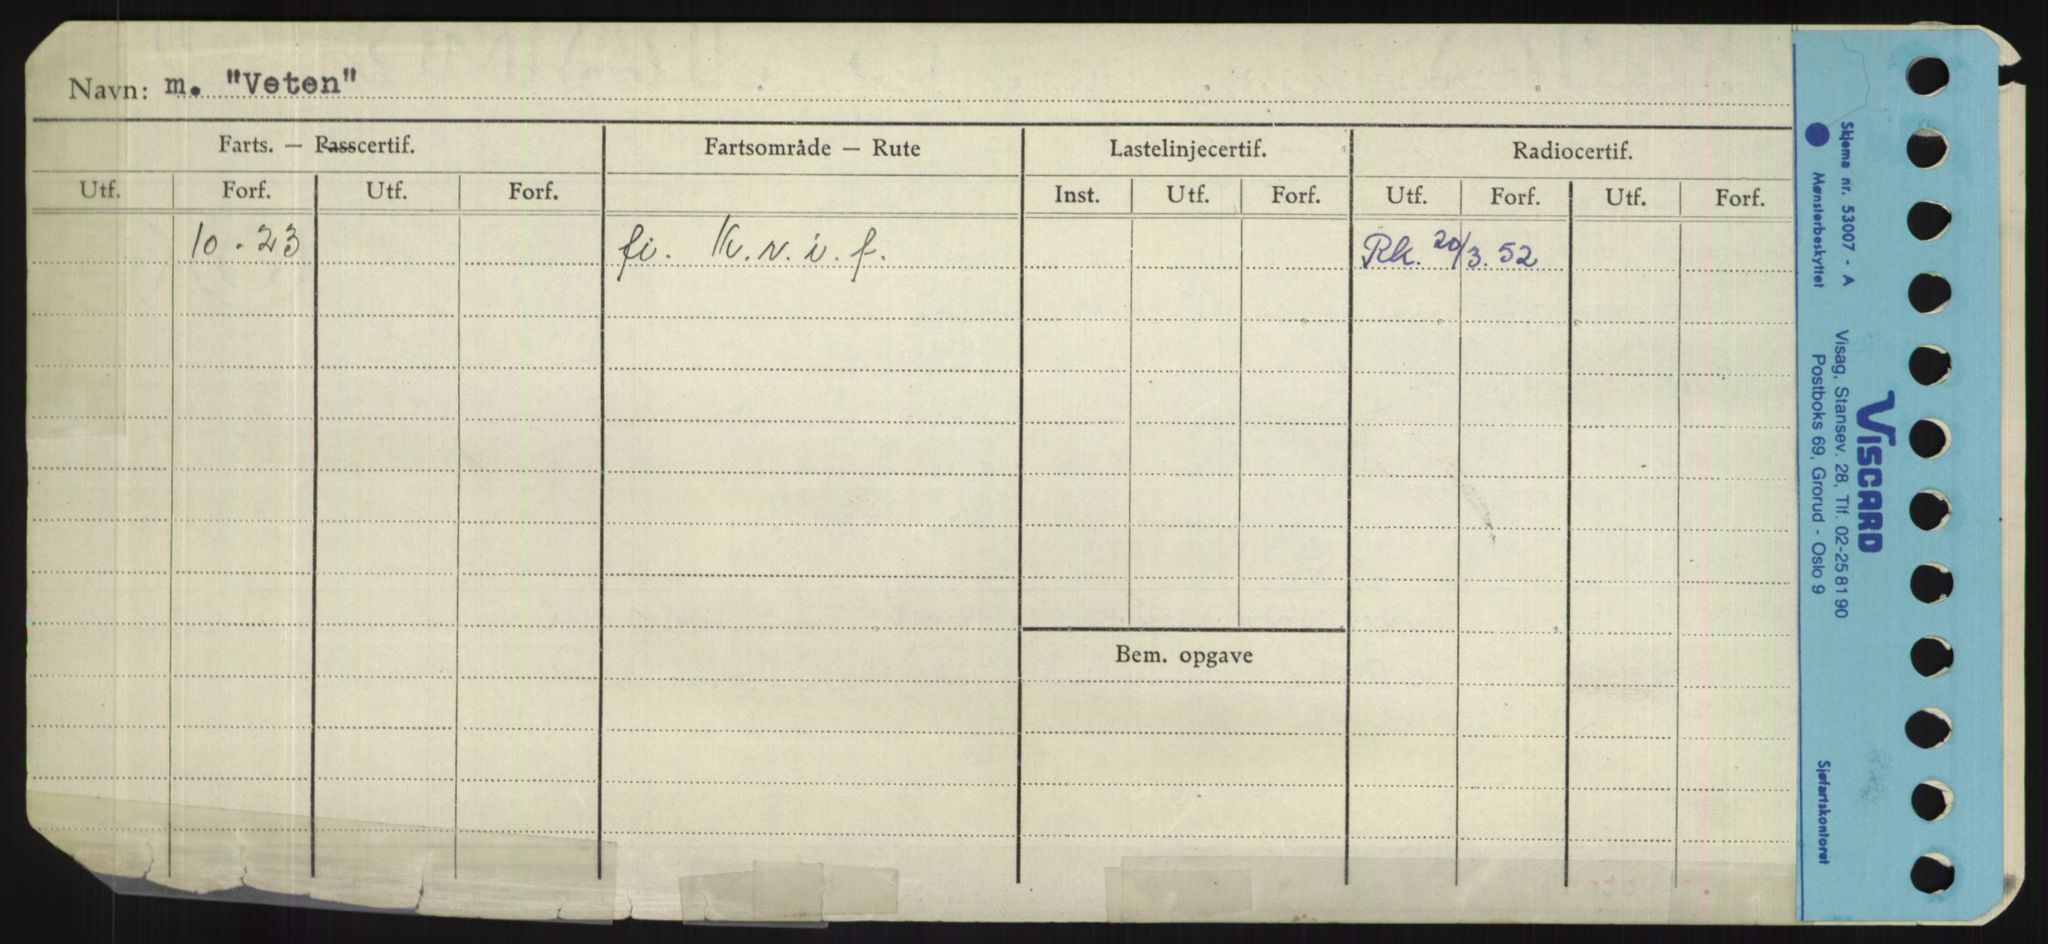 Navn: m. "Veten"
Farts. — Passcertif. Fartsområde — Rute Lastelinjecertif. Radiocertif.
Utf. Forf. Utf. Forf. Inst. Utf. Forf. Utf. Forf. Utf. Forf.
10.23 fi. K.v.i.f. Rk. 20/3.52
Bem. opgave
Skjema nr. 53007 - A
Mønsterbeskyttet
VISCARD
Visag, Stansev. 28, Tlf. 02-25 81 90
Postboks 69, Grorud - Oslo 9
Sjøfartskontoret